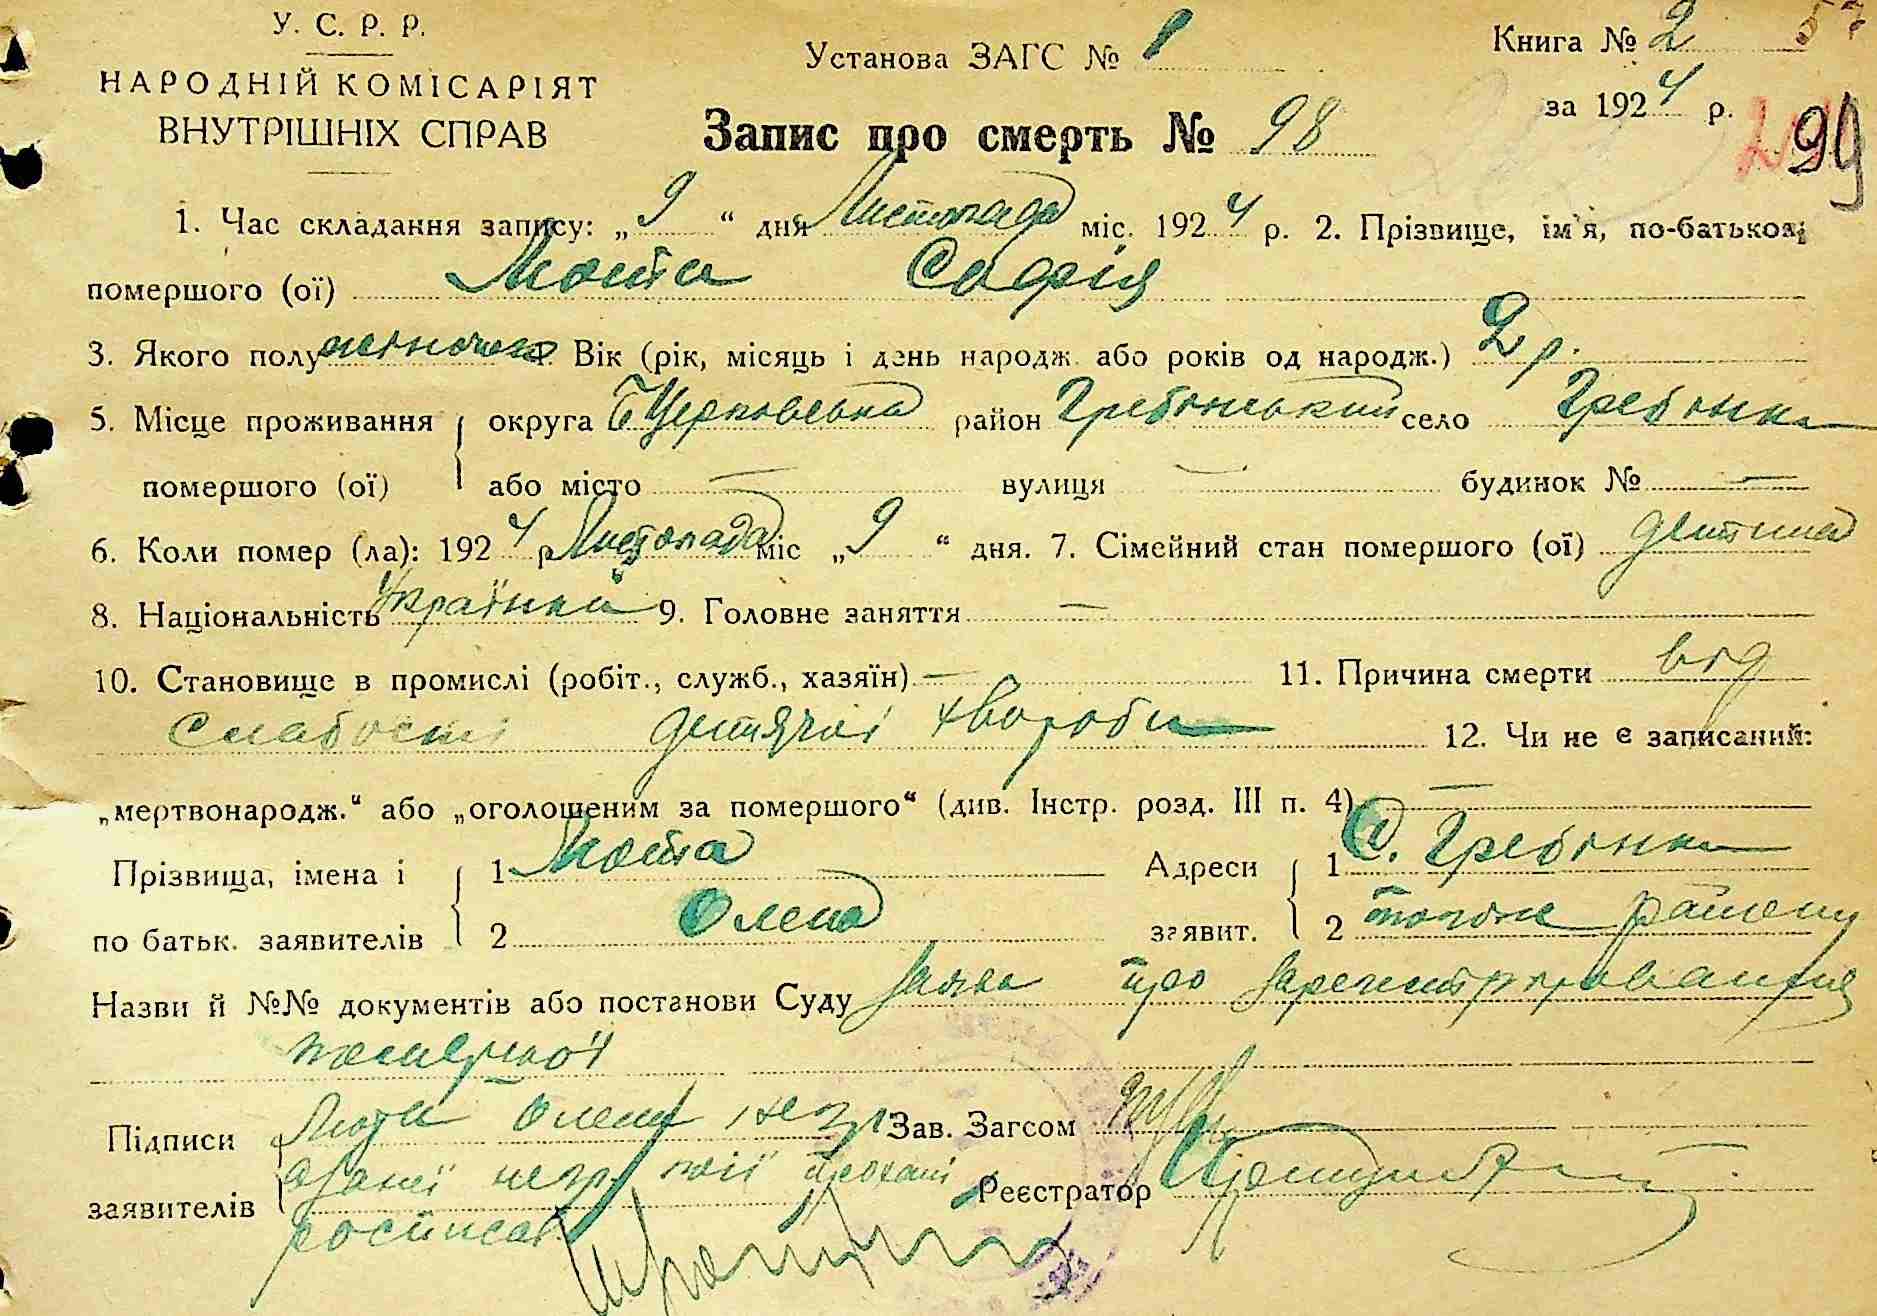 У. С. Р. Р.
НАРОДНІЙ КОМІСАРІЯТ
ВНУТРІШНІХ СПРАВ
Установа ЗАГС № 1
Книга № 2
за 1924 р.
99
Запис про смерть № 98
1. Час складання запису: „9“ дня Листопада міс. 1924 р. 2. Прізвище, ім'я, по-батькові
помершого (ої) Люта Софія
3. Якого полу жіночого 4. Вік (рік, місяць і день народж. або років од народж.) 2 р.
5. Місце проживання помершого (ої) округа БЦерковська район Гребінський село Гребінка
або місто — вулиця — будинок № —
6. Коли помер (ла): 1924 р Листопада міс „9“ дня. 7. Сімейний стан помершого (ої) дитина
8. Національність Українка 9. Головне заняття —
10. Становище в промислі (робіт., служб., хазяїн) — 11. Причина смерти від
слабости дитячої хвороби 12. Чи не є записаний:
„мертвонародж.“ або „оголошеним за помершого“ (див. Інстр. розд. III п. 4) —
Прізвища, імена і по батьк. заявителів 1 Люта
2 Олена
Адреси заявит. 1 с. Гребінка
2 того ж району
Назви й №№ документів або постанови Суду Заява про зареєстрировання
помершої
Підписи заявителів Люта Олена
неgr. її прохані
росписав
Зав. Загсом
Реєстратор